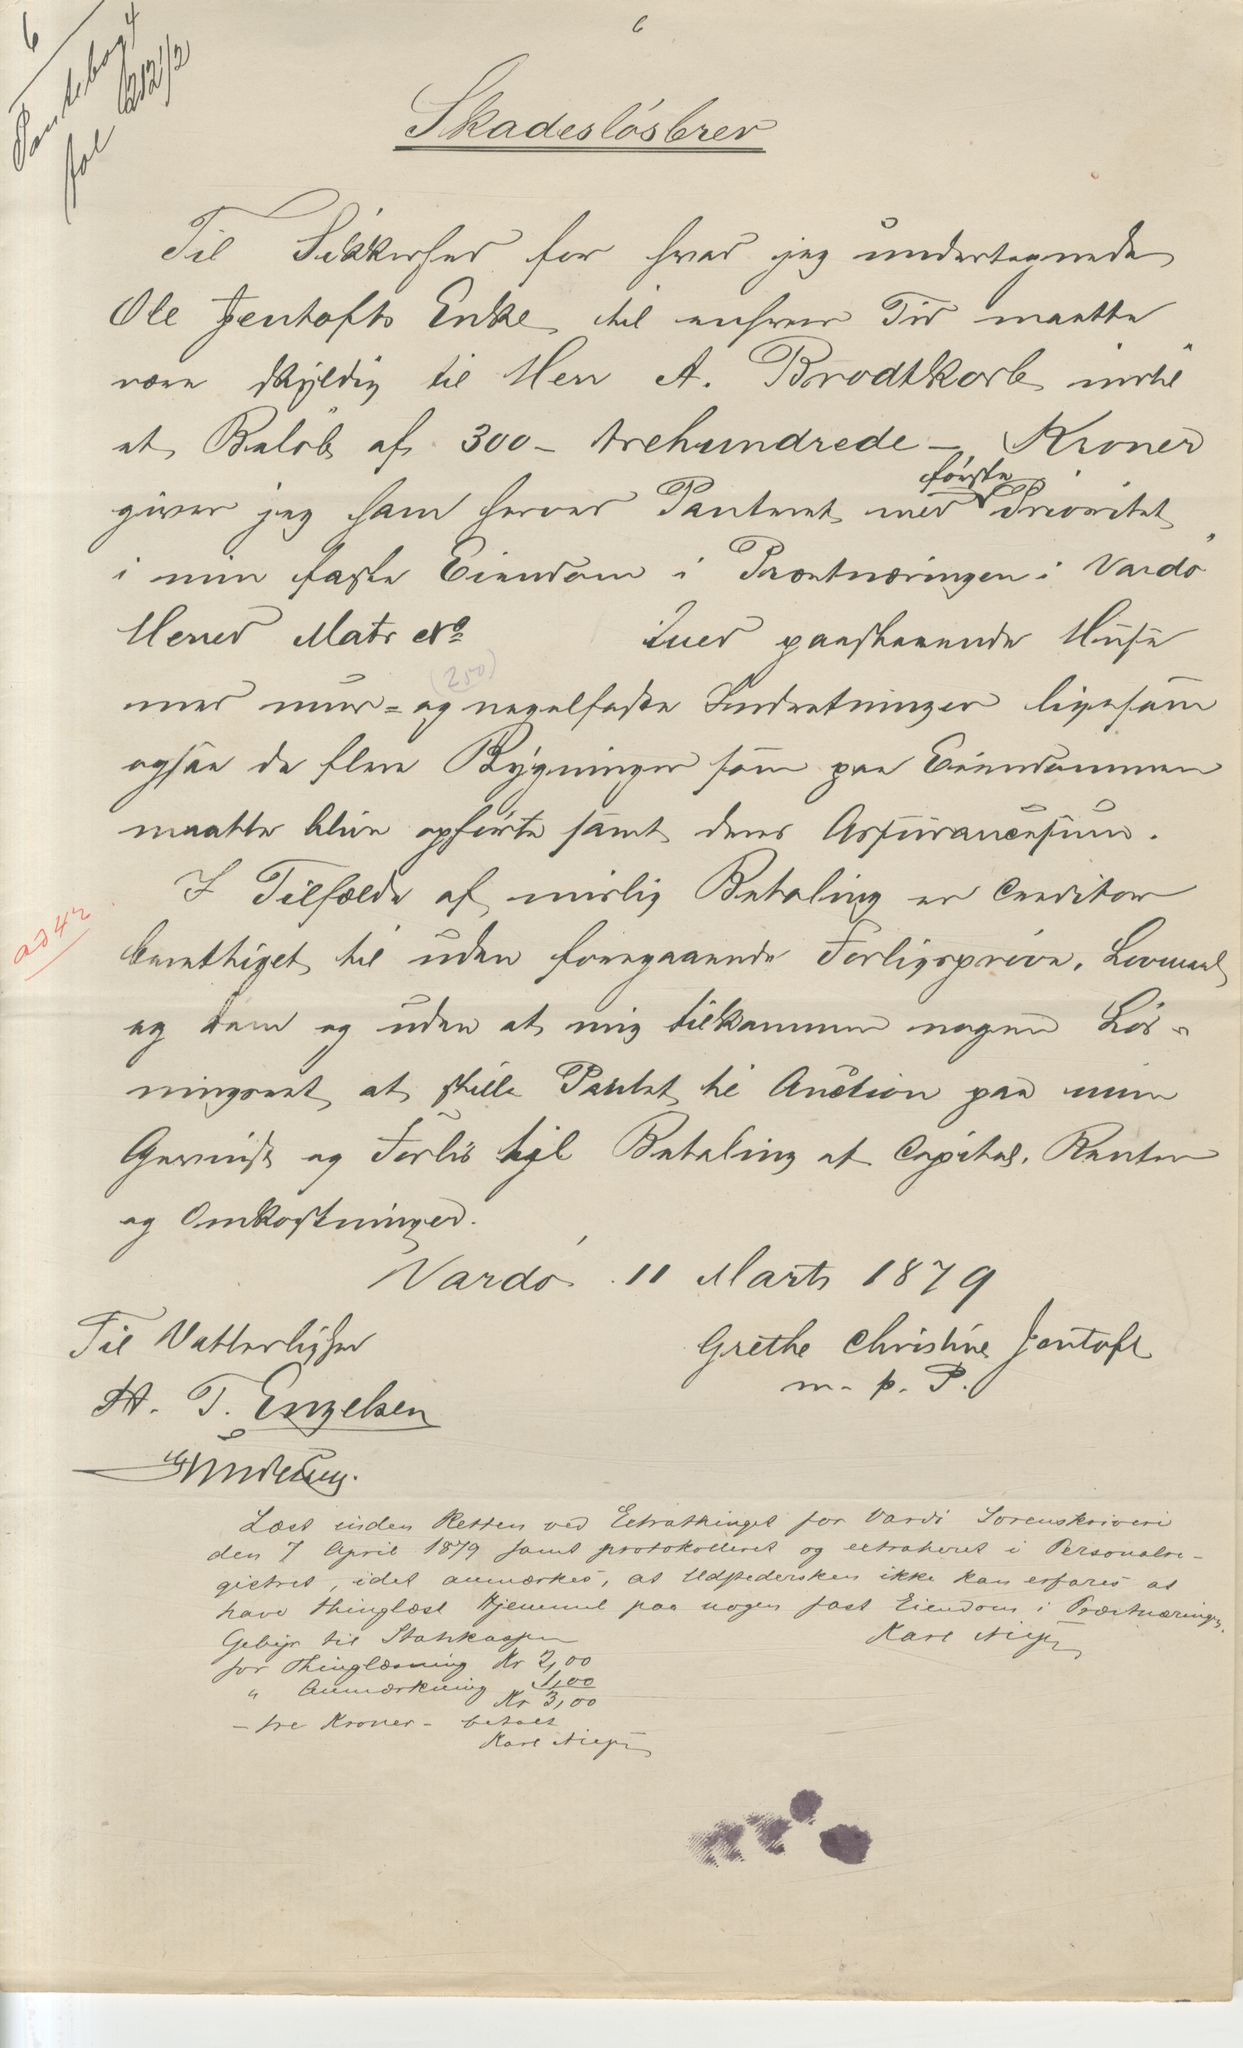 6
6
Pantebog 4
fol 212/2
Skadesløsbrev
Til Sikkerhed for hvad jeg undertegnede
Ole Jentofts Enke til enhver Tid maatte
være skyldig til Herr A. Brodtkorb indtil
et Beløb af 300 - trehundrede - Kroner
giver jeg ham herved Panteret med første Prioritet
i min faste Eiendom i Præstnæringen i Vardø
Herred Matr No med paastaaende Huse
(250)
med mur= og nagelfaste Indretninger ligesom
ogsaa de flere Bygninger som paa Eiendommen
maatte blive opførte samt deres Assurancesum.
I Tilfælde af mislig Betaling er Creditor
ad 42
berettiget til uden foregaaende Forligsprøve, Lovmaal
og Dom og uden at mig tilkommer nogen Løs=
ningsret at stille Pantet til Auction paa min
Gevinst og Forlis til Betaling af Capital, Renter
og Omkostninger.
Vardø 11 Marts 1879
Til Vitterlighed
Grethe Christine Jentoft
m. p. P.
H. T. Engelsen
Læst inden Retten ved Extrathinget for Vardø Sorenskriveri
den 7 April 1879 samt protokolleret og extraheret i Personalre-
gistret, idet anmærkes, at Udstedersken ikke kan erfares at
have thinglæst Hjemmel paa nogen fast Eiendom i Præstnæringen.
Gebyr til Statskassen
Karl
for Thinglæsning Kr 2,00
" Anmærkning 1,00
Kr 3,00
- tre Kroner - betalt
Karl